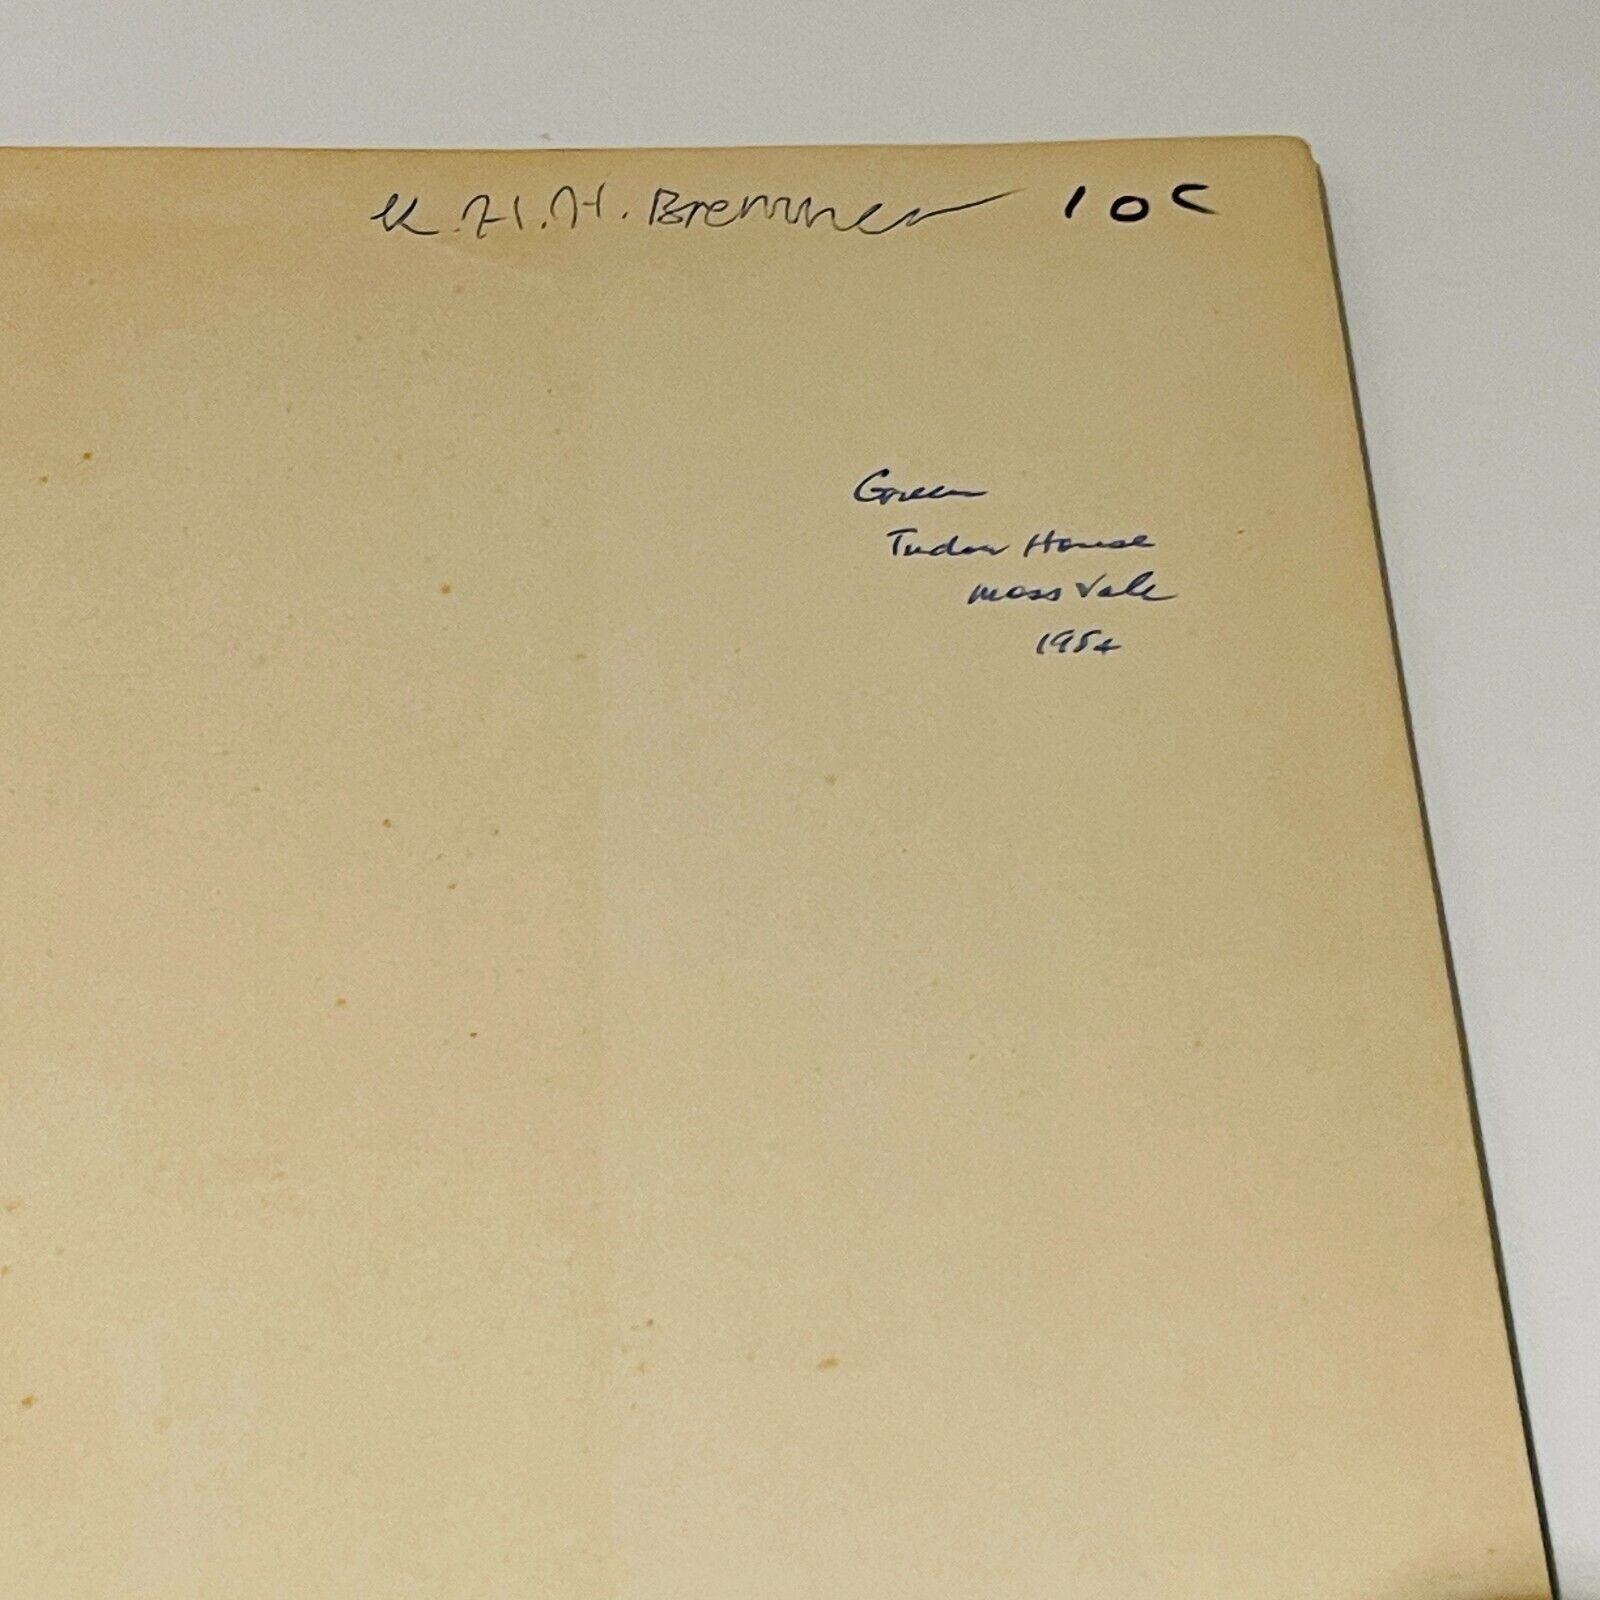 K.H.H. Bremner 10c
Green
Tudor House
Moss Vale
1954